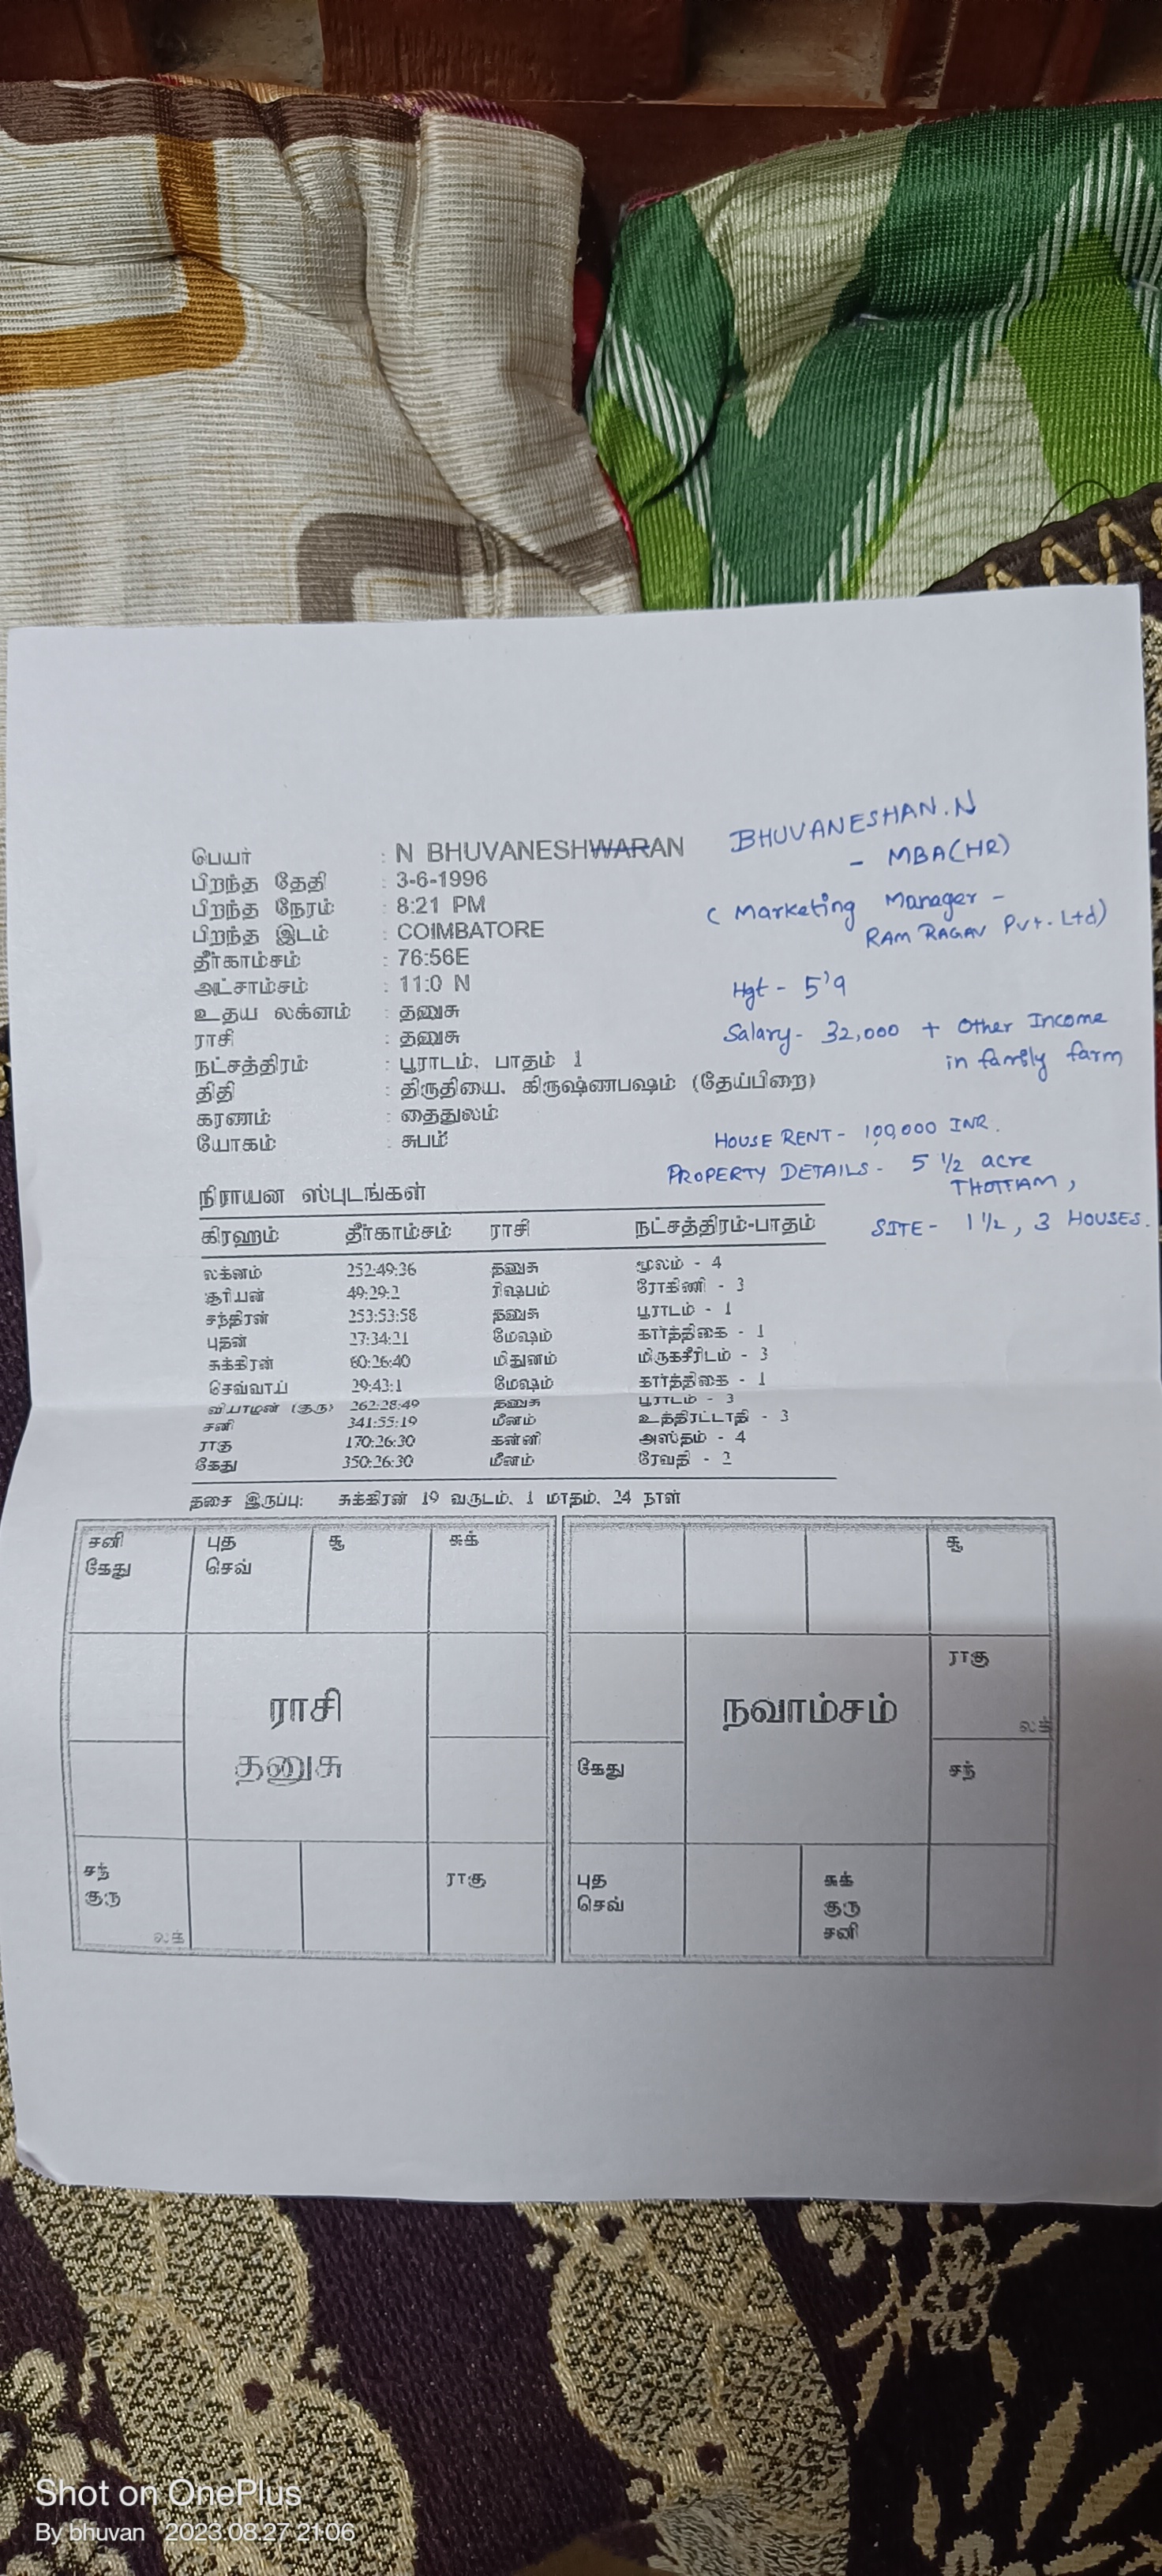 பெயர் : N BHUVANESHWARAN
பிறந்த தேதி : 3-6-1996
பிறந்த நேரம் : 8:21 PM
பிறந்த இடம் : COIMBATORE
தீர்காம்சம் : 76:56E
அட்சாம்சம் : 11:0 N
உதய லக்னம் : தனுசு
ராசி : தனுசு
நட்சத்திரம் : பூராடம், பாதம் 1
திதி : திருதியை, கிருஷ்ணபஷம் (தேய்பிறை)
கரணம் : தைதுலம்
யோகம் : சுபம்
BHUVANESHAN.N
- MBA(HR)
( Marketing Manager -
RAM RAGAV Pvt. Ltd)
Hgt - 5'9
Salary- 32,000 + Other Income
in family farm
HOUSE RENT - 100,000 INR.
PROPERTY DETAILS - 5 1/2 acre
THOTTAM,
SITE - 1 1/2, 3 HOUSES.
நிராயன ஸ்புடங்கள்
கிரஹம் தீர்காம்சம் ராசி நட்சத்திரம்-பாதம்
லக்னம் 252:49:36 தனுசு மூலம் - 4
சூரியன் 49:29:2 ரிஷபம் ரோகிணி - 3
சந்திரன் 253:53:58 தனுசு பூராடம் - 1
புதன் 27:34:21 மேஷம் கார்த்திகை - 1
சுக்கிரன் 60:26:40 மிதுனம் மிருகசீரிடம் - 3
செவ்வாய் 29:43:1 மேஷம் கார்த்திகை - 1
வியாழன் (குரு) 262:28:49 தனுசு பூராடம் - 3
சனி 341:55:19 மீனம் உத்திரட்டாதி - 3
ராகு 170:26:30 கன்னி அஸ்தம் - 4
கேது 350:26:30 மீனம் ரேவதி - 2
தசை இருப்பு: சுக்கிரன் 19 வருடம், 1 மாதம், 24 நாள்
சனி புத சூ சுக்
கேது செவ்
ராசி
தனுசு
சந் ராகு
குரு
லக்
சூ
ராகு
லக்
நவாம்சம்
கேது சந்
புத சுக்
செவ் குரு
சனி
Shot on OnePlus
By bhuvan 2023.08.27 21:06